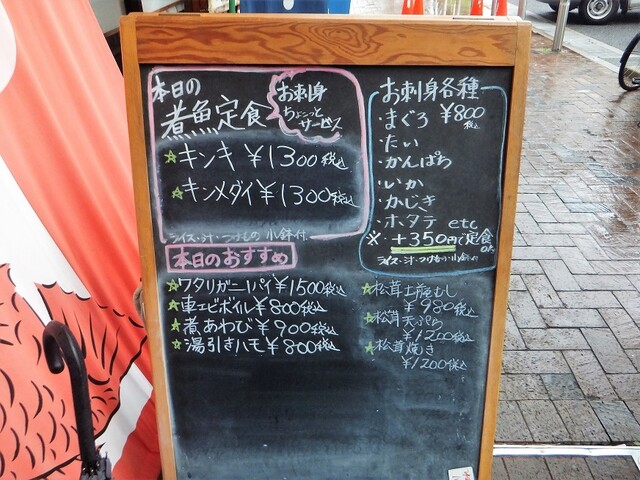 本日の
煮魚定食
お刺身
ちょこっと
サービス
☆キンキ ¥1300税込
☆キンメダイ ¥1300税込
ライス・汁・つけもの 小鉢付
お刺身各種
・まぐろ ¥800
税込
・たい
・かんぱち
・いか
・かじき
・ホタテ etc
※・+350円で定食
ライス・汁・つけもの・小鉢付
本日のおすすめ
☆ワタリガニ1パイ¥1500税込
☆車エビボイル¥800税込
☆煮あわび¥900税込
☆湯引きハモ¥800税込
☆松茸土瓶むし
¥980税込
☆松茸天ぷら
¥1200税込
☆松茸焼き
¥1200税込